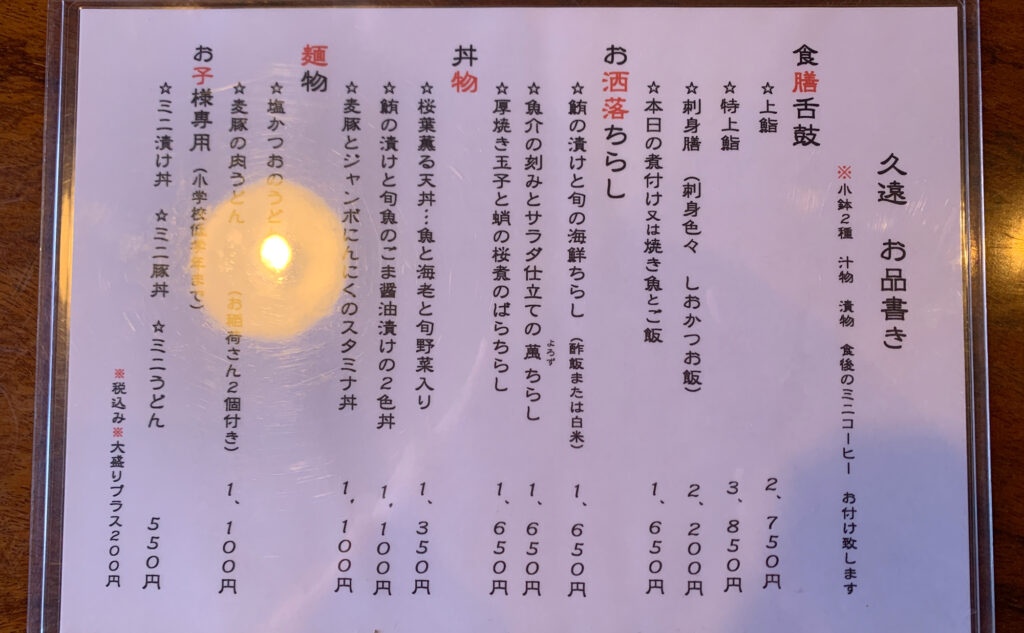 久遠 お品書き
※小鉢2種 汁物 漬物 食後のミニコーヒー お付け致します
食膳舌鼓
☆上鮨 2、750円
☆特上鮨 3、850円
☆刺身膳 (刺身色々 しおかつお飯) 2、200円
☆本日の煮付け又は焼き魚とご飯 1、650円
お洒落ちらし
☆鮪の漬けと旬の海鮮ちらし (酢飯または白米) 1、650円
☆魚介の刻みとサラダ仕立ての萬ちらし 1、650円
よろず
☆厚焼き玉子と蛸の桜煮のばらちらし 1、650円
丼物
☆桜葉薫る天丼…魚と海老と旬野菜入り 1、350円
☆鮪の漬けと旬魚のごま醤油漬けの2色丼 1、100円
☆麦豚とジャンボにんにくのスタミナ丼 1、100円
麺物
☆塩かつおのうどん
☆麦豚の肉うどん (お稲荷さん2個付き) 1、100円
お子様専用 (小学校低学年まで)
☆ミニ漬け丼 ☆ミニ豚丼 ☆ミニうどん 550円
※税込み※大盛りプラス200円